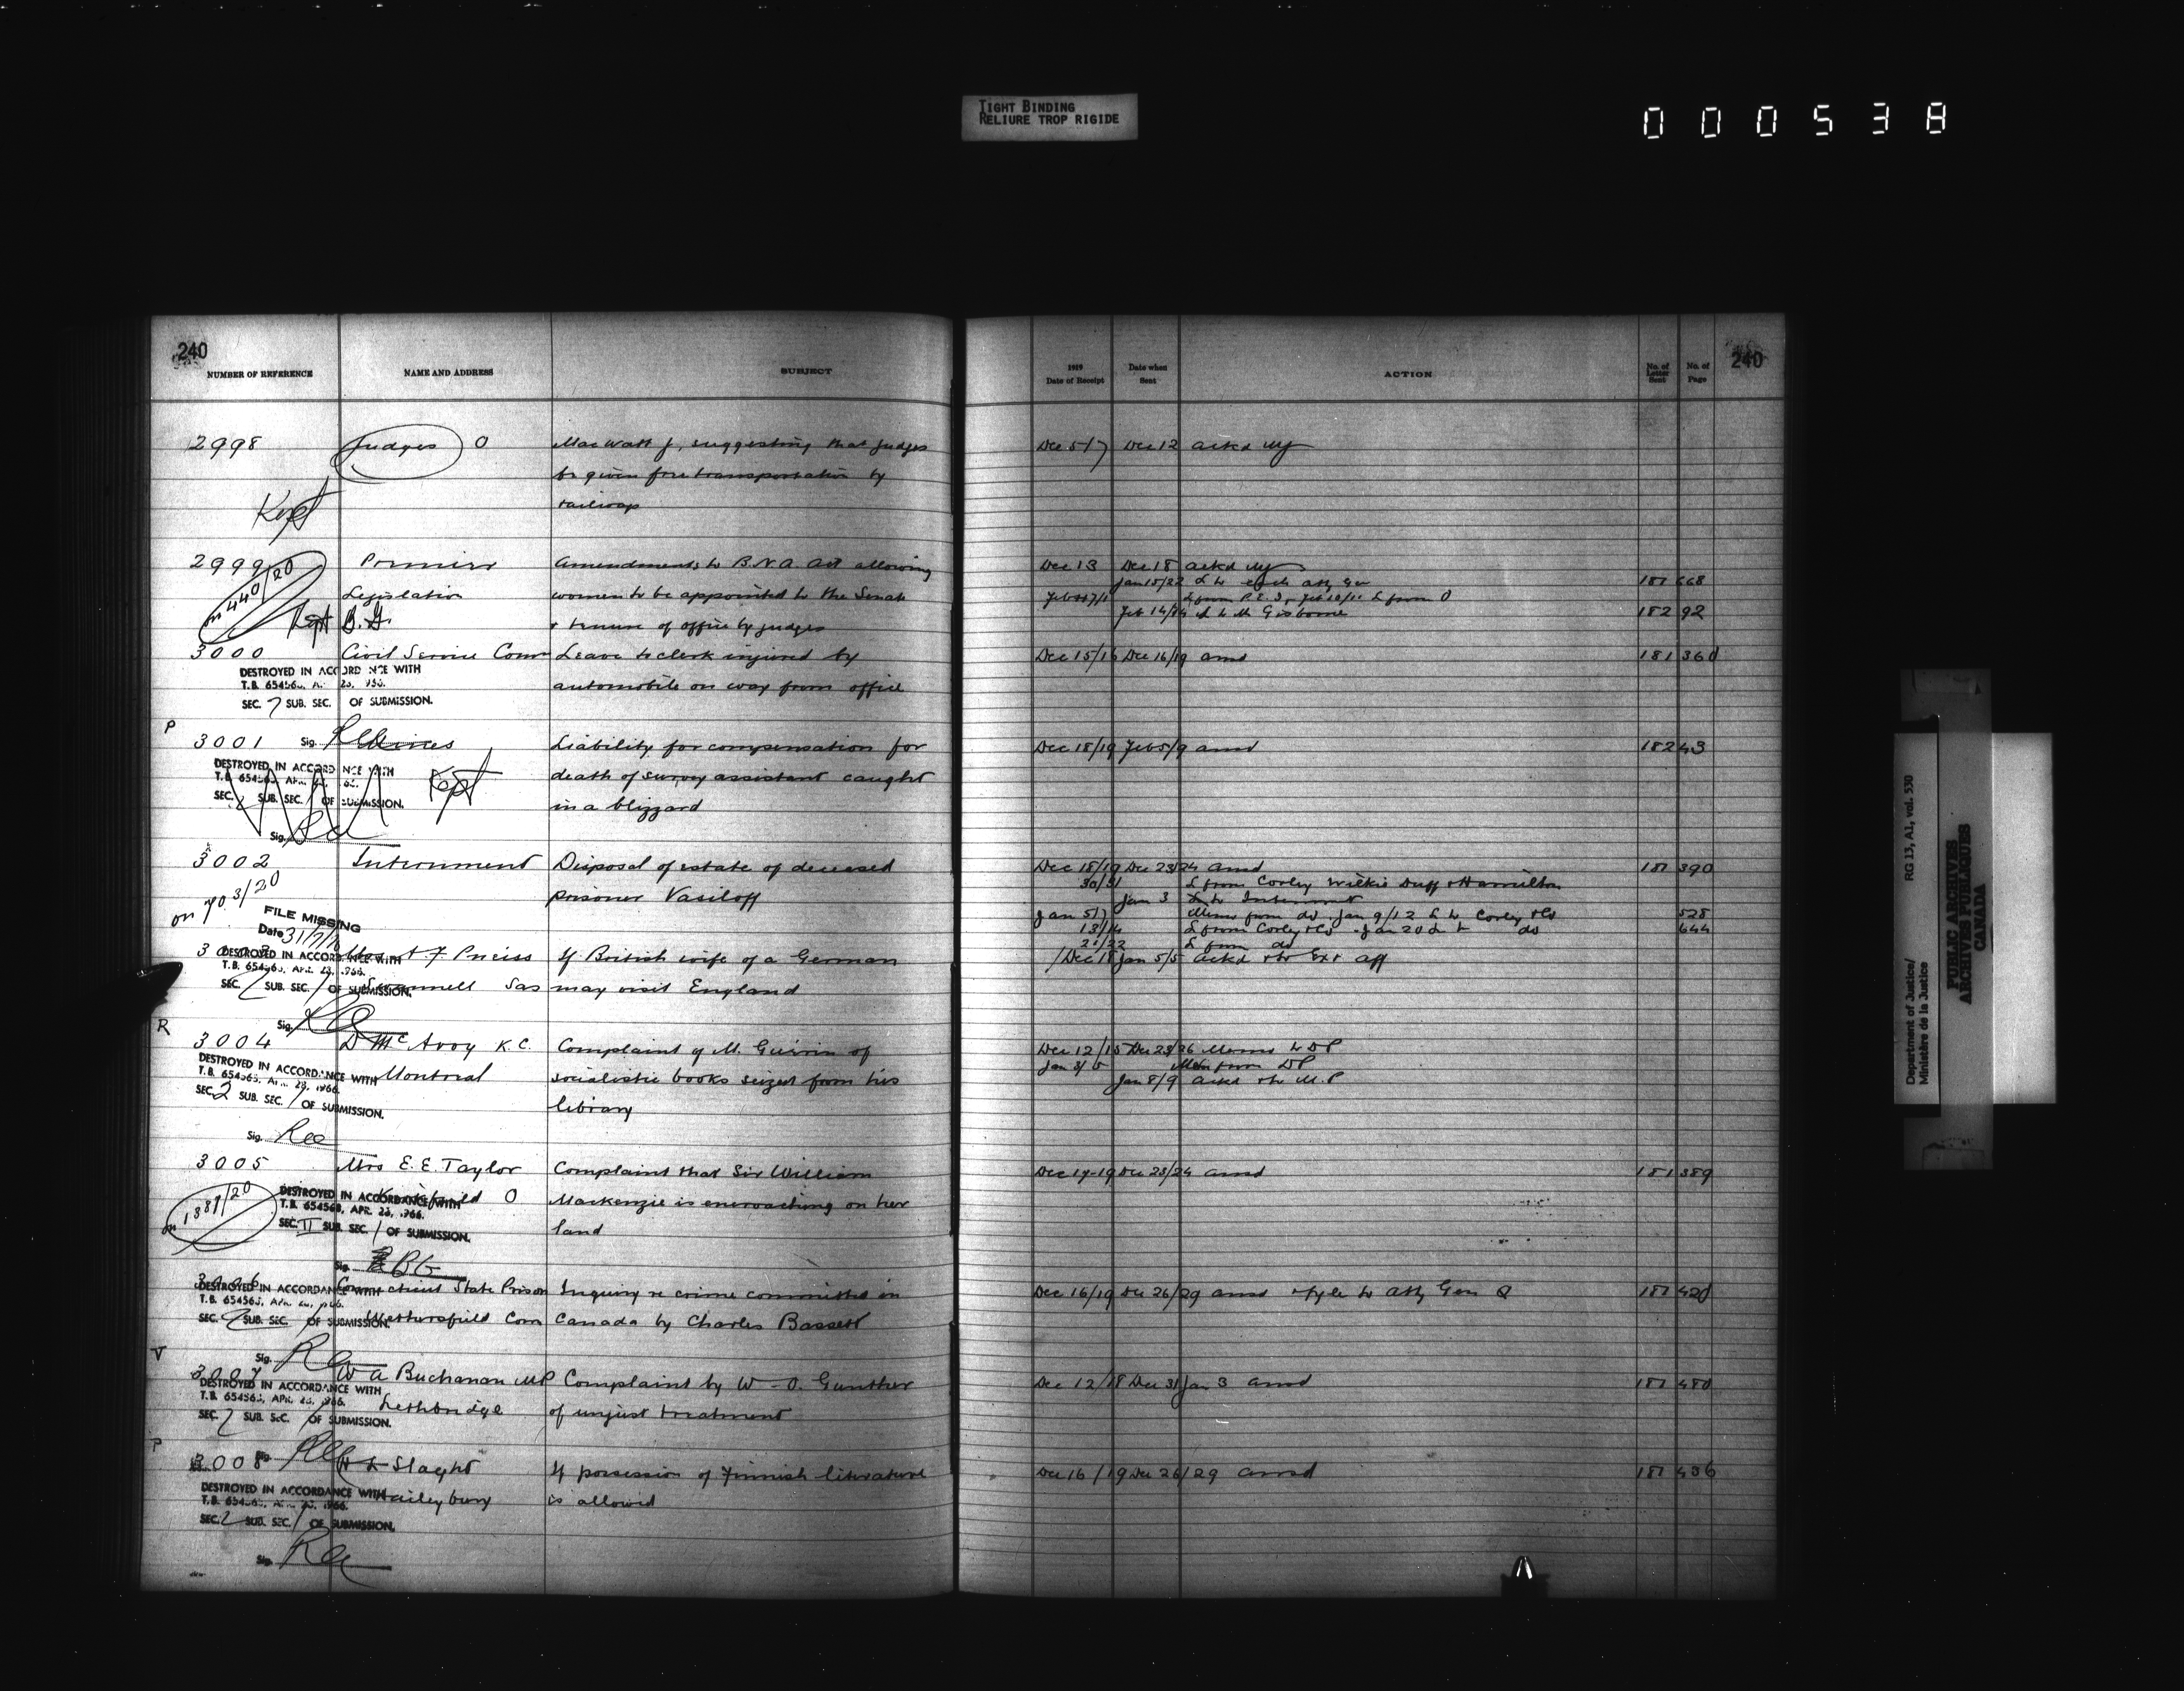 TIGHT BINDING
RELIURE TROP RIGIDE
000538
240
NUMBER OF REFERENCE NAME AND ADDRESS SUBJECT
1919
Date of Receipt Date when Sent ACTION No. of Letter Sent No. of Page
240
2998 Judges O MacWatt J, suggesting that judges Dec 5/7 Dec 12 ackd
be given free transportation by
Kept railways
2999 Premier Amendments to B.N.A. Act allowing Dec 13 Dec 18 ackd
on 440/20 Legislation women to be appointed to the Senate Jan 15/22 L to each Atty Gen 181 668
L from P.E.I.
Kept B.G. & tenure of office by judges Feb 14/14 L to M Gisborne 182 92
3000 Civil Service Com Leave to clerk injured by Dec 15/16 Dec 16/19 ansd 181 360
DESTROYED IN ACCORDANCE WITH
automobile on way from office
SEC. 7 SUB. SEC. OF SUBMISSION.
P
3001 Sig. Mines Liability for compensation for Dec 18/19 Feb 5/9 ansd 182 43
DESTROYED IN ACCORDANCE WITH
Kept death of survey assistant caught
SEC. 2 SUB. SEC. 1 OF SUBMISSION. in a blizzard
Sig.
3002 Internment Disposal of estate of deceased Dec 18/19 Dec 23/24 ansd 181 390
on 703/20 prisoner Vasiloff 30/31 L from Corley Wilkie Duff & Hamilton
Jan 3 L to Internment
FILE MISSING Jan 5/7 Memo from do. Jan 9/12 L to Corley &Co 528
Date 31/7/ 13/14 L from Corley &Co. Jan 20 L to do 644
21/22 L from do
A F Preiss If British wife of a German Dec 18 Jan 5/5 ackd & to Ext Aff
DESTROYED IN ACCORDANCE WITH
SEC. 2 SUB. SEC. 1 OF SUBMISSION. Sas may visit England
Sig.
R
3004 D McAvoy K.C. Complaint of M. Guérin of Dec 12/15 Dec 23/26 Memo to DP
DESTROYED IN ACCORDANCE WITH
Montreal socialistic books seized from his Jan 3/5 Memo from DP
SEC. 2 SUB. SEC. 1 OF SUBMISSION. library Jan 8/9 ackd & to M.P
Sig.
3005 Mrs E. E. Taylor Complaint that Sir William Dec 17-19 Dec 23/24 ansd 181 389
on 1387/20 Kirkfield O MacKenzie is encroaching on her
DESTROYED IN ACCORDANCE WITH
T.B. 654563, APR. 23, 1966.
SEC. II SUB. SEC. 1 OF SUBMISSION. land
Sig. BG
3006 Connecticut State Prison Inquiry re crime committed in Dec 16/19 Dec 26/29 ansd & fyle to Atty Gen Q 181 420
DESTROYED IN ACCORDANCE WITH
SEC. 2 SUB. SEC. OF SUBMISSION. Wethersfield Conn Canada by Charles Bassett
V
Sig.
3007 W A Buchanan MP Complaint by W. O. Gunther Dec 12/18 Dec 31 Jan 3 ansd 181 480
DESTROYED IN ACCORDANCE WITH
Lethbridge of unjust treatment
SEC. 2 SUB. SEC. 1 OF SUBMISSION.
P
Sig.
3008 Slaght If possession of Finnish literature Dec 16/19 Dec 26/29 ansd 181 436
DESTROYED IN ACCORDANCE WITH
Haileybury is allowed
SEC. 2 SUB. SEC. 1 OF SUBMISSION.
Sig.
Department of Justice/
Ministère de la Justice
RG 13, A1, vol. 530
PUBLIC ARCHIVES
ARCHIVES PUBLIQUES
CANADA